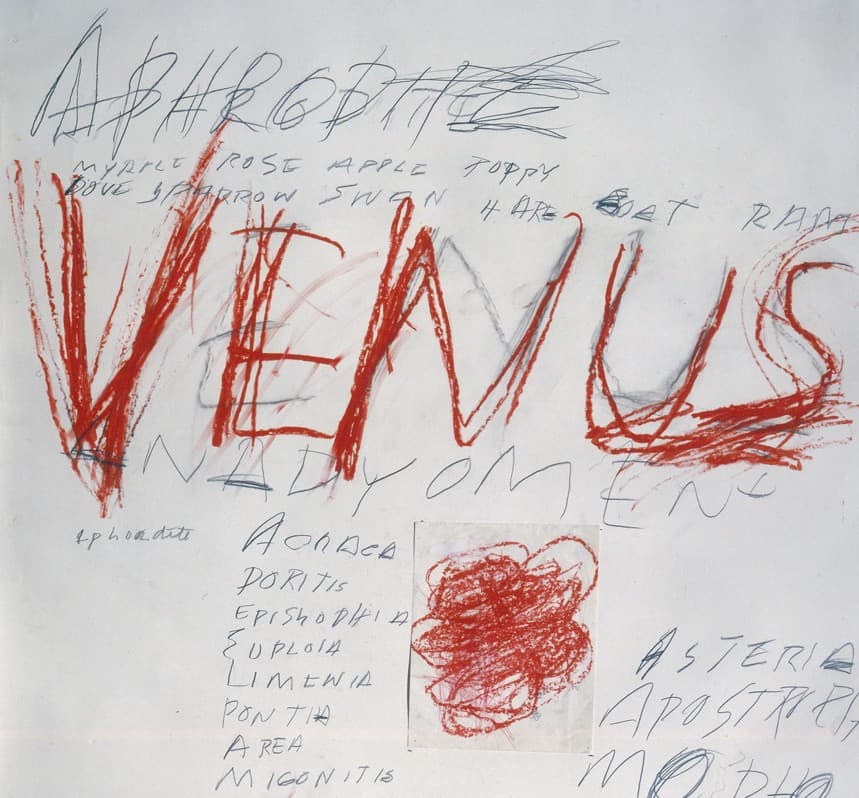 APHRODITE
MYRTLE ROSE APPLE POPPY
DOVE SPARROW SWAN HARE GOAT RAM
VENUS
ANADYOMENE
Aphrodite
DORITIS
EPISTRODHIA
EUPLOIA
LIMENIA
PONTIA
AREA
MIGONITIS
ASTERIA
APOSTROPH
MORPHO